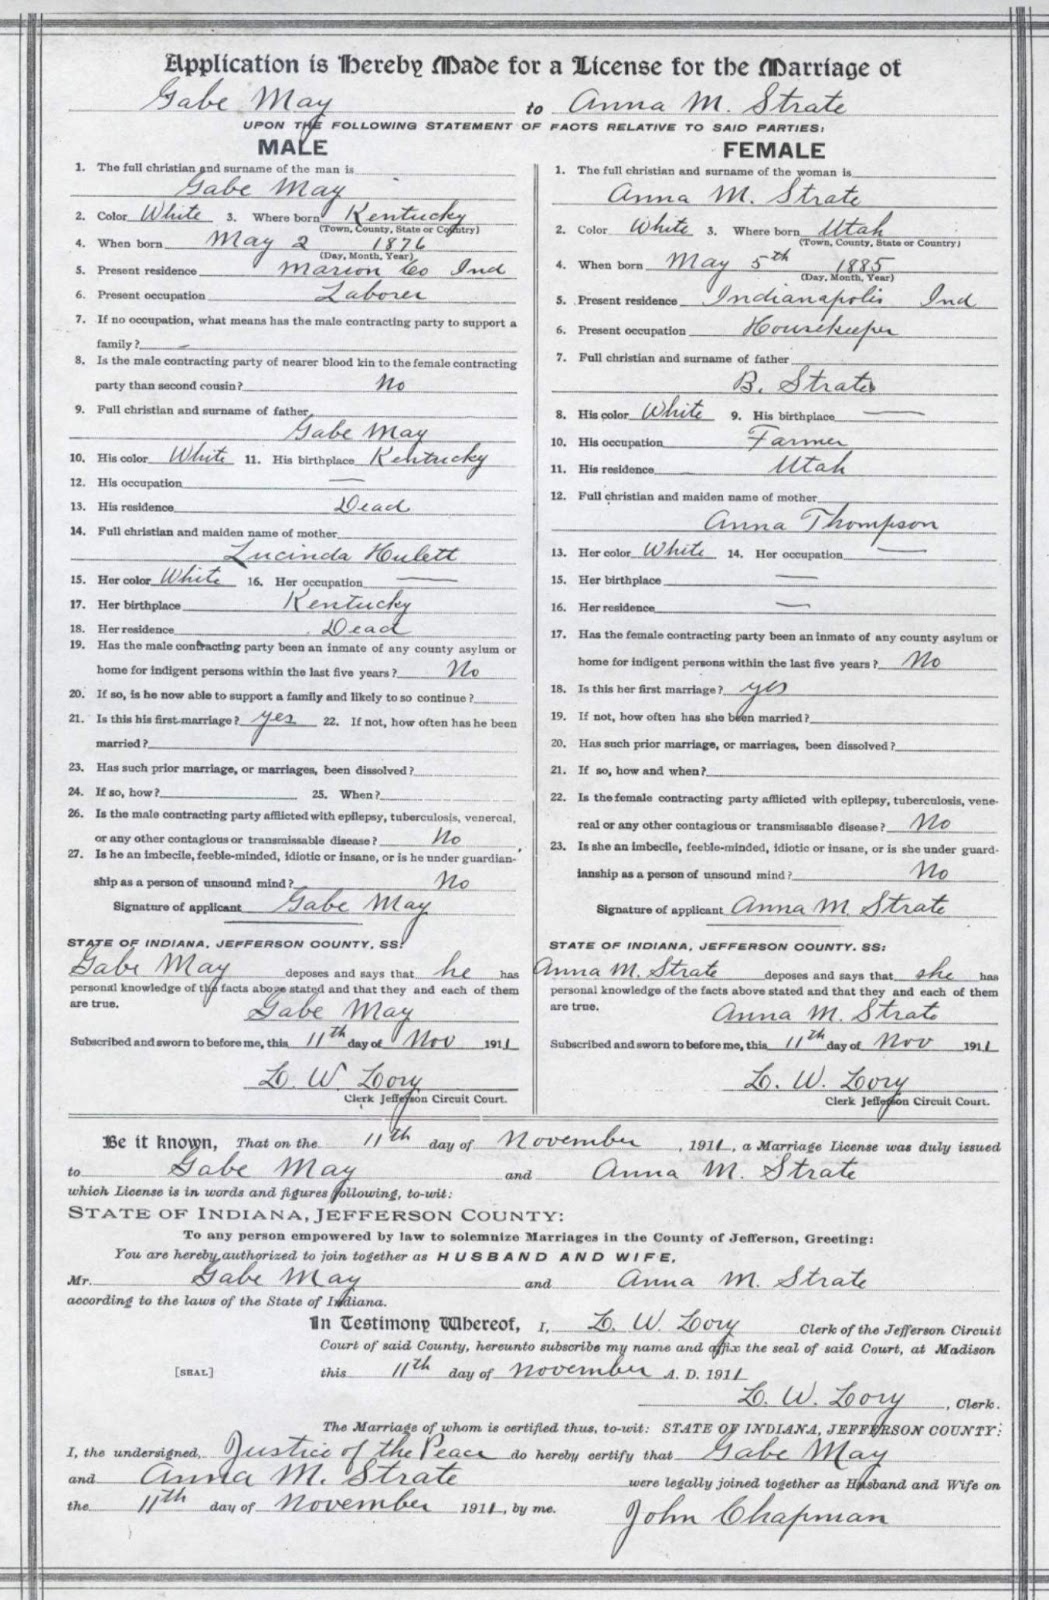 Application is Hereby Made for a License for the Marriage of
Gabe May to Anna M. Strate
UPON THE FOLLOWING STATEMENT OF FACTS RELATIVE TO SAID PARTIES:
MALE
1. The full christian and surname of the man is
Gabe May
2. Color White 3. Where born Kentucky
(Town, County, State or Country)
4. When born May 2 1876
(Day, Month, Year)
5. Present residence Marion Co Ind
6. Present occupation Laborer
7. If no occupation, what means has the male contracting party to support a
family?
8. Is the male contracting party of nearer blood kin to the female contracting
party than second cousin? No
9. Full christian and surname of father
Gabe May
10. His color White 11. His birthplace Kentucky
12. His occupation —
13. His residence Dead
14. Full christian and maiden name of mother
Lucinda Hulett
15. Her color White 16. Her occupation —
17. Her birthplace Kentucky
18. Her residence Dead
19. Has the male contracting party been an inmate of any county asylum or
home for indigent persons within the last five years? No
20. If so, is he now able to support a family and likely to so continue?
21. Is this his first marriage? yes 22. If not, how often has he been
married?
23. Has such prior marriage, or marriages, been dissolved?
24. If so, how? 25. When?
26. Is the male contracting party afflicted with epilepsy, tuberculosis, venereal,
or any other contagious or transmissable disease? No
27. Is he an imbecile, feeble-minded, idiotic or insane, or is he under guardian-
ship as a person of unsound mind? No
Signature of applicant Gabe May
STATE OF INDIANA, JEFFERSON COUNTY, SS:
Gabe May deposes and says that he has
personal knowledge of the facts above stated and that they and each of them
are true. Gabe May
Subscribed and sworn to before me, this 11th day of Nov 1911
L. W. Lory
Clerk Jefferson Circuit Court.
FEMALE
1. The full christian and surname of the woman is
Anna M. Strate
2. Color White 3. Where born Utah
(Town, County, State or Country)
4. When born May 5th 1885
(Day, Month, Year)
5. Present residence Indianapolis Ind
6. Present occupation Housekeeper
7. Full christian and surname of father
B. Strate
8. His color White 9. His birthplace —
10. His occupation Farmer
11. His residence Utah
12. Full christian and maiden name of mother
Anna Thompson
13. Her color White 14. Her occupation —
15. Her birthplace —
16. Her residence —
17. Has the female contracting party been an inmate of any county asylum or
home for indigent persons within the last five years? No
18. Is this her first marriage? yes
19. If not, how often has she been married?
20. Has such prior marriage, or marriages, been dissolved?
21. If so, how and when?
22. Is the female contracting party afflicted with epilepsy, tuberculosis, vene-
real or any other contagious or transmissable disease? No
23. Is she an imbecile, feeble-minded, idiotic or insane, or is she under guard-
ianship as a person of unsound mind? No
Signature of applicant Anna M. Strate
STATE OF INDIANA, JEFFERSON COUNTY, SS:
Anna M. Strate deposes and says that she has
personal knowledge of the facts above stated and that they and each of them
are true. Anna M. Strate
Subscribed and sworn to before me, this 11th day of Nov 1911
L. W. Lory
Clerk Jefferson Circuit Court.
Be it known, That on the 11th day of November, 1911, a Marriage License was duly issued
to Gabe May and Anna M. Strate
which License is in words and figures following, to-wit:
STATE OF INDIANA, JEFFERSON COUNTY:
To any person empowered by law to solemnize Marriages in the County of Jefferson, Greeting:
You are hereby authorized to join together as HUSBAND AND WIFE,
Mr. Gabe May and Anna M. Strate
according to the laws of the State of Indiana.
In Testimony Whereof, I, L. W. Lory Clerk of the Jefferson Circuit
Court of said County, hereunto subscribe my name and affix the seal of said Court, at Madison
[SEAL] this 11th day of November A. D. 1911
L. W. Lory, Clerk.
The Marriage of whom is certified thus, to-wit: STATE OF INDIANA, JEFFERSON COUNTY:
I, the undersigned, Justice of the Peace do hereby certify that Gabe May
and Anna M. Strate were legally joined together as Husband and Wife on
the 11th day of November 1911, by me.
John Chapman